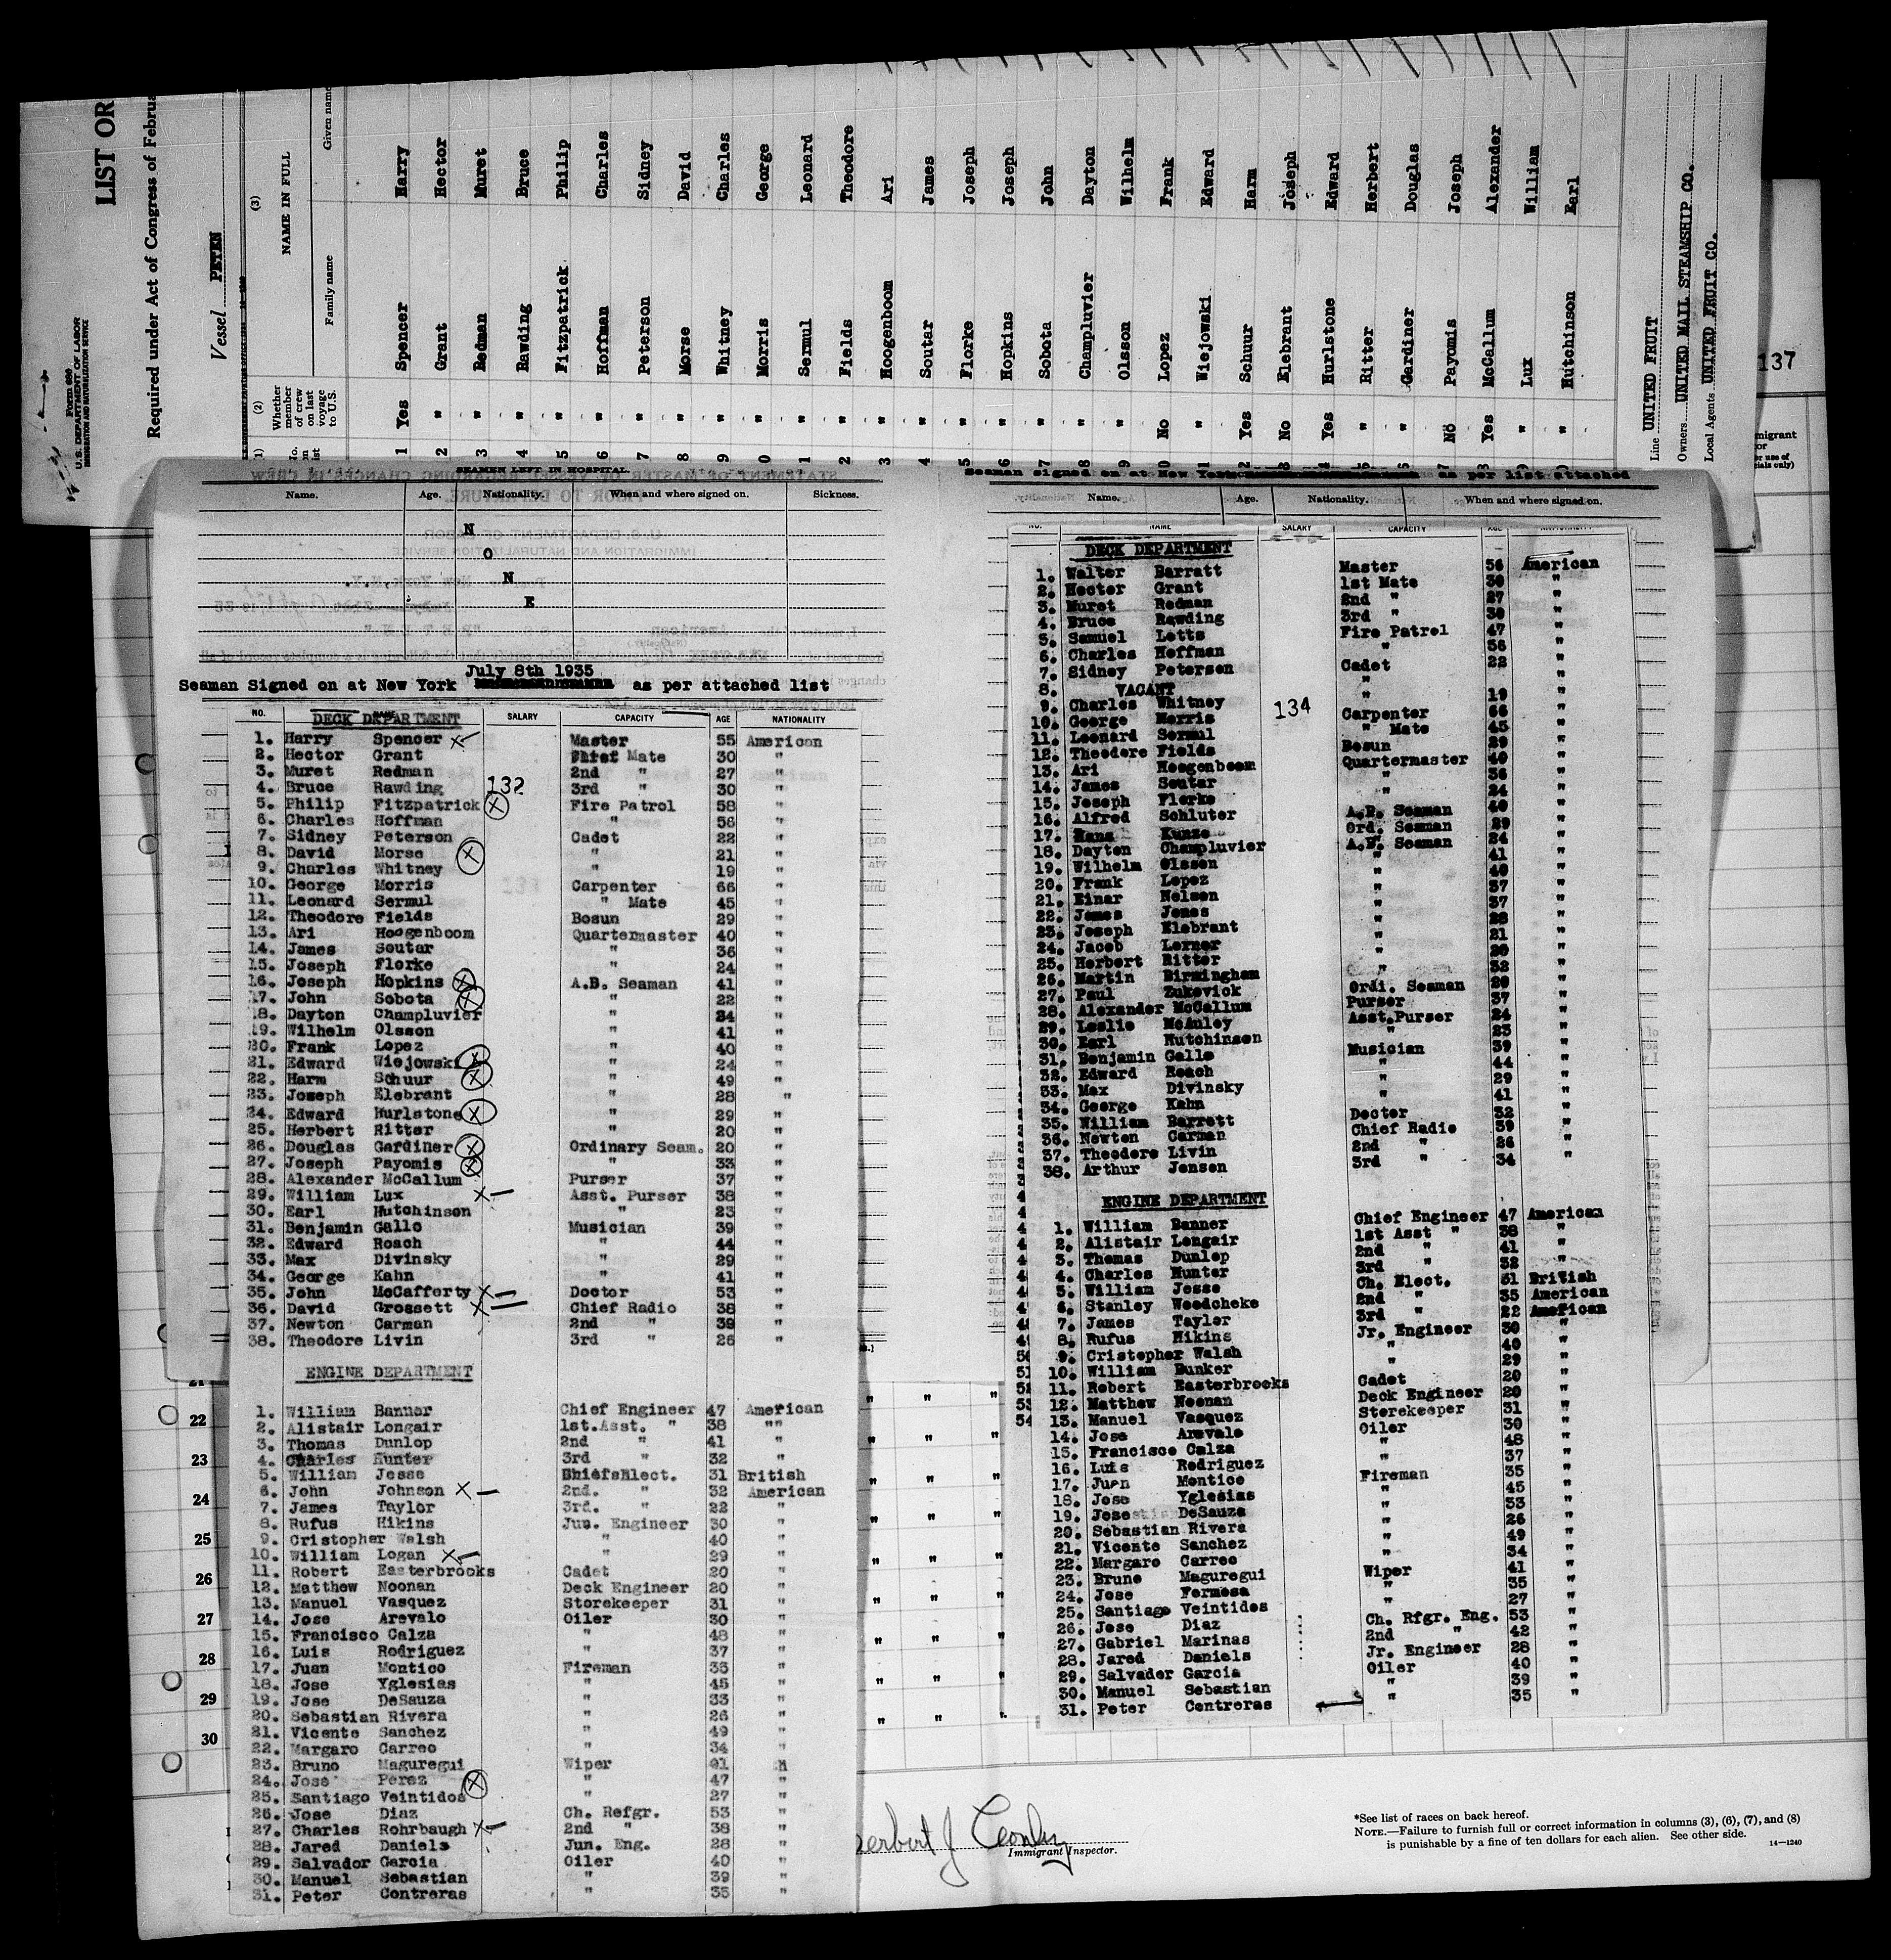 LIST OR
Required under Act of Congress of Februa
Form 680
U. S. DEPARTMENT OF LABOR
IMMIGRATION AND NATURALIZATION SERVICE
Vessel PETEN
(2) (3)
NAME IN FULL
Whether member of crew on last voyage to U.S. Family name Given name
1 Yes Spencer Harry
2 " Grant Hector
3 " Redman Muret
4 " Rawding Bruce
5 " Fitzpatrick Philip
6 " Hoffman Charles
7 " Peterson Sidney
8 " Morse David
9 " Whitney Charles
0 " Morris George
1 " Sermul Leonard
2 " Fields Theodore
3 " Hoogenboom Ari
4 " Soutar James
5 " Florke Joseph
6 " Hopkins Joseph
7 " Sobota John
8 " Champluvier Dayton
9 " Olsson Wilhelm
0 No Lopez Frank
1 " Wiejowski Edward
2 Yes Schuur Harm
3 No Elebrant Joseph
4 Yes Hurlstone Edward
5 " Ritter Herbert
6 " Gardiner Douglas
7 No Payomis Joseph
8 Yes McCallum Alexander
9 " Lux William
0 " Hutchinson Earl
Line UNITED FRUIT
Owners UNITED MAIL STEAMSHIP CO.
Local Agents UNITED FRUIT CO.
137
SEAMEN LEFT IN HOSPITAL.
Name. Age. Nationality. When and where signed on. Sickness.
N
O
N
E
July 8th 1935
Seaman Signed on at New York as per attached list
NO. NAME SALARY CAPACITY AGE NATIONALITY
DECK DEPARTMENT
1. Harry Spencer x Master 55 American
2. Hector Grant Chief Mate 30 "
3. Muret Redman 2nd " 27 "
4. Bruce Rawding 132 3rd " 30 "
5. Philip Fitzpatrick x Fire Patrol 58 "
6. Charles Hoffman " 56 "
7. Sidney Peterson Cadet 22 "
8. David Morse x " 21 "
9. Charles Whitney " 19 "
10. George Morris Carpenter 66 "
11. Leonard Sermul " Mate 45 "
12. Theodore Fields Bosun 29 "
13. Ari Hoogenboom Quartermaster 40 "
14. James Soutar " 36 "
15. Joseph Florke " 24 "
16. Joseph Hopkins x A.B. Seaman 41 "
17. John Sobota x " 22 "
18. Dayton Champluvier " 24 "
19. Wilhelm Olsson " 41 "
20. Frank Lopez " 40 "
21. Edward Wiejowski x " 24 "
22. Harm Schuur x " 49 "
23. Joseph Elebrant " 28 "
24. Edward Hurlstone x " 29 "
25. Herbert Ritter " 20 "
26. Douglas Gardiner x Ordinary Seam. 20 "
27. Joseph Payomis x " 33 "
28. Alexander McCallum Purser 37 "
29. William Lux x Asst. Purser 38 "
30. Earl Hutchinson " 23 "
31. Benjamin Gallo Musician 39 "
32. Edward Roach " 44 "
33. Max Divinsky " 29 "
34. George Kahn " 41 "
35. John McCafferty x Doctor 53 "
36. David Grossett x Chief Radio 38 "
37. Newton Carman 2nd " 39 "
38. Theodore Livin 3rd " 26 "
ENGINE DEPARTMENT
1. William Banner Chief Engineer 47 American
2. Alistair Longair 1st.Asst. " 38 "
3. Thomas Dunlop 2nd " 41 "
4. Charles Hunter 3rd " 32 "
5. William Jesse Chief Elect. 31 British
6. John Johnson x 2nd. " 32 American
7. James Taylor 3rd. " 22 "
8. Rufus Hikins Jun. Engineer 30 "
9. Cristopher Walsh " 40 "
10. William Logan x " 29 "
11. Robert Easterbrooks Cadet 20 "
12. Matthew Noonan Deck Engineer 20 "
13. Manuel Vasquez Storekeeper 31 "
14. Jose Arevalo Oiler 30 "
15. Francisco Calza " 48 "
16. Luis Rodriguez " 37 "
17. Juan Montico Fireman 35 "
18. Jose Yglesias " 45 "
19. Jose DeSauza " 33 "
20. Sebastian Rivera " 26 "
21. Vicente Sanchez " 49 "
22. Margaro Carreo " 34 "
23. Bruno Maguregui Wiper 41 "
24. Jose Perez x " 47 "
25. Santiago Veintidos " 27 "
26. Jose Diaz Ch. Refgr. 53 "
27. Charles Rohrbaugh x 2nd " 38 "
28. Jared Daniels Jun. Eng. 28 "
29. Salvador Garcia Oiler 40 "
30. Manuel Sebastian " 39 "
31. Peter Contreras " 35 "
Seaman signed on at New York as per list attached
Name. Age. Nationality. When and where signed on.
NO. NAME SALARY CAPACITY AGE NATIONALITY
DECK DEPARTMENT
1. Walter Barratt Master 56 American
2. Hector Grant 1st Mate 30 "
3. Muret Redman 2nd " 27 "
4. Bruce Rawding 3rd " 30 "
5. Samuel Letts Fire Patrol 47 "
6. Charles Hoffman " 56 "
7. Sidney Peterson Cadet 22 "
8. VACANT "
9. Charles Whitney 134 " 19 "
10. George Morris Carpenter 66 "
11. Leonard Sermul " Mate 45 "
12. Theodore Fields Bosun 29 "
13. Ari Hoogenboom Quartermaster 40 "
14. James Soutar " 36 "
15. Joseph Florke " 24 "
16. Alfred Schluter A.B. Seaman 40 "
17. Hans Kunze Ord. Seaman 29 "
18. Dayton Champluvier A.B. Seaman 24 "
19. Wilhelm Olsson " 41 "
20. Frank Lopez " 40 "
21. Einar Nelson " 37 "
22. James Jones " 37 "
23. Joseph Elebrant " 28 "
24. Jacob Lerner " 21 "
25. Herbert Ritter " 20 "
26. Martin Birmingham " 32 "
27. Paul Zukovick Ordi. Seaman 20 "
28. Alexander McCallum Purser 37 "
29. Leslie McAnley Asst.Purser 24 "
30. Earl Hutchinson " 23 "
31. Benjamin Gallo Musician 39 "
32. Edward Roach " 44 "
33. Max Divinsky " 29 "
34. George Kahn " 41 "
35. William Barrett Doctor 32 "
36. Newton Carman Chief Radio 39 "
37. Theodore Livin 2nd " 26 "
38. Arthur Jensen 3rd " 34 "
ENGINE DEPARTMENT
1. William Banner Chief Engineer 47 American
2. Alistair Longair 1st Asst " 38 "
3. Thomas Dunlop 2nd " 41 "
4. Charles Hunter 3rd " 32 "
5. William Jesse Ch. Elect. 31 British
6. Stanley Woodcheke 2nd " 35 American
7. James Taylor 3rd " 22 American
8. Rufus Hikins Jr. Engineer 30 "
9. Cristopher Walsh " 40 "
10. William Bunker " 29 "
11. Robert Easterbrooks Cadet 20 "
12. Matthew Noonan Deck Engineer 20 "
13. Manuel Vasquez Storekeeper 31 "
14. Jose Arevalo Oiler 30 "
15. Francisco Calza " 48 "
16. Luis Rodriguez " 37 "
17. Juan Montico Fireman 35 "
18. Jose Yglesias " 45 "
19. Jose DeSauza " 33 "
20. Sebastian Rivera " 26 "
21. Vicente Sanchez " 49 "
22. Margaro Carreo " 34 "
23. Bruno Maguregui Wiper 41 "
24. Jose Formosa " 35 "
25. Santiago Veintidos " 27 "
26. Jose Diaz Ch. Rfgr. Eng. 53 "
27. Gabriel Marinas 2nd " 42 "
28. Jared Daniels Jr. Engineer 28 "
29. Salvador Garcia Oiler 40 "
30. Manuel Sebastian " 39 "
31. Peter Contreras " 35 "
22
23
24
25
26
27
28
29
30
Immigrant Inspector.
*See list of races on back hereof.
NOTE.—Failure to furnish full or correct information in columns (3), (6), (7), and (8)
is punishable by a fine of ten dollars for each alien. See other side.
14—1240